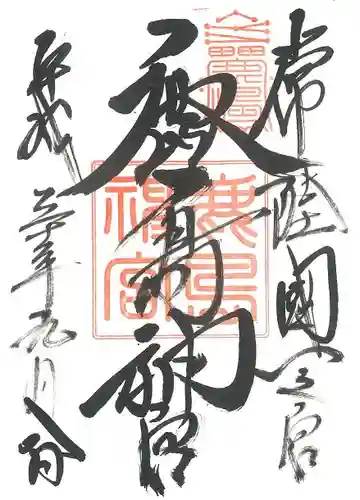 常陸國一之宮
鹿島神宮
平成三十年九月八日
鹿島
神宮